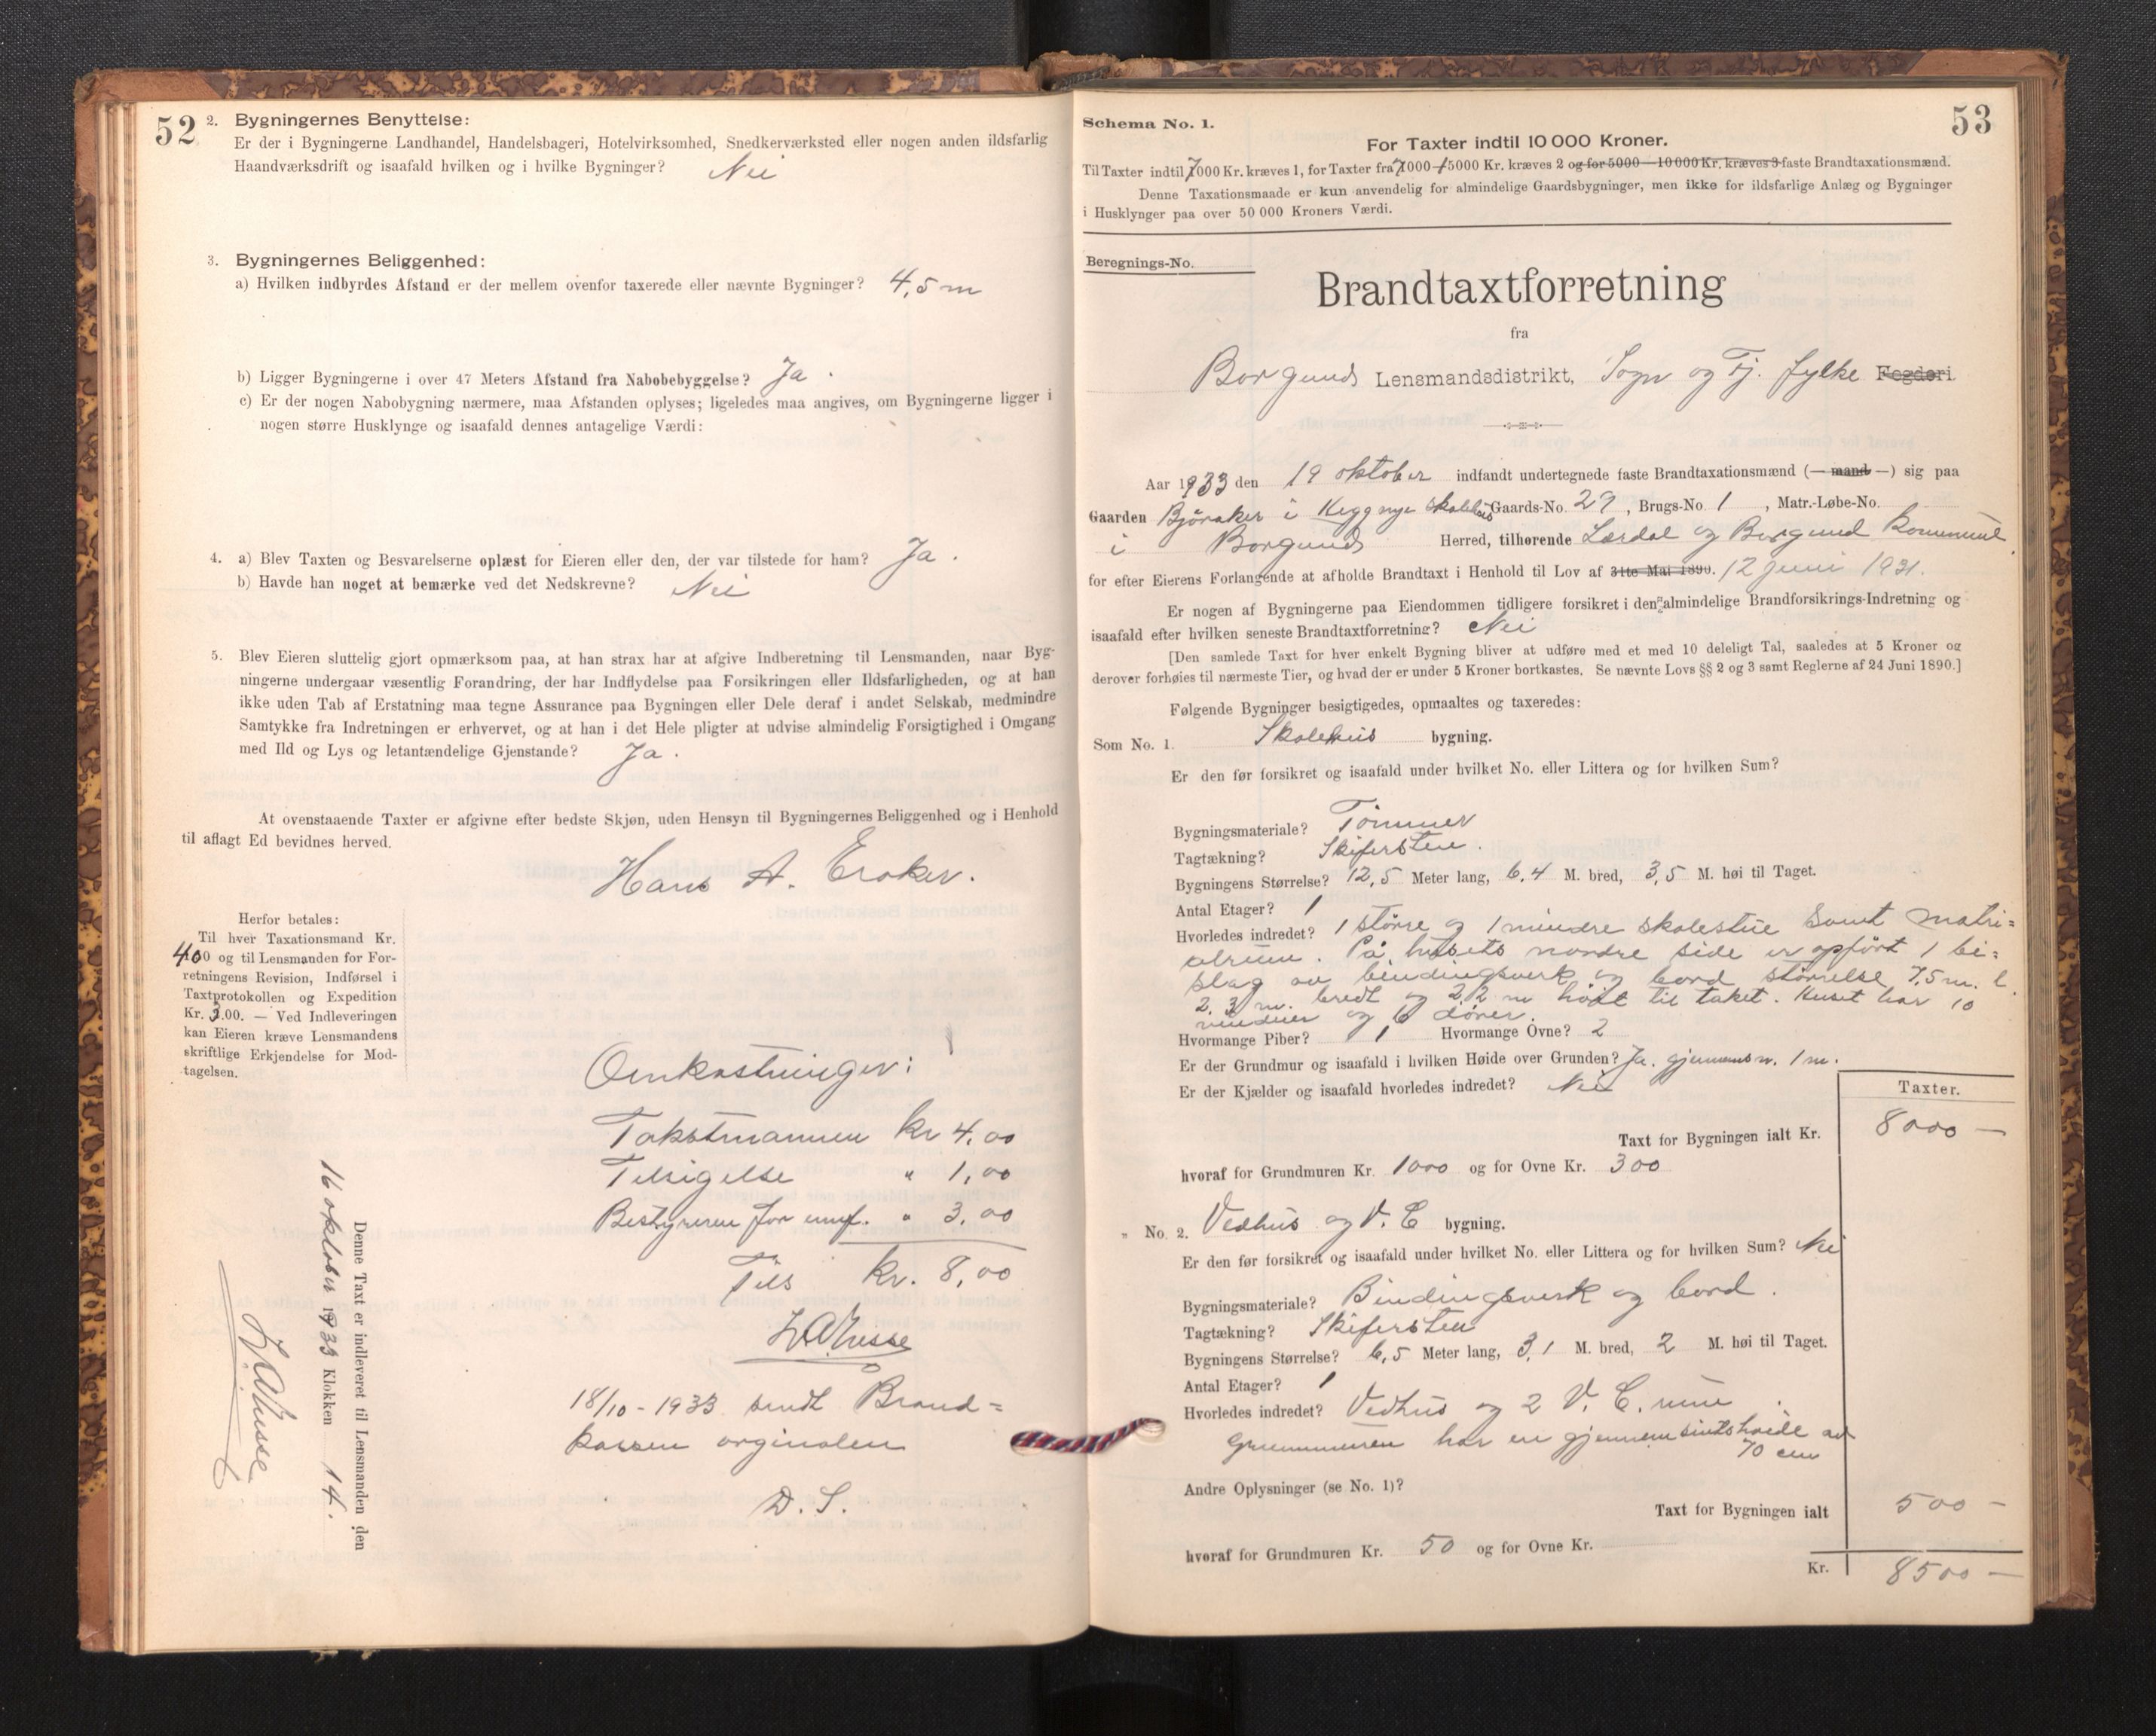 52
2. Bygningernes Benyttelse:
Er der i Bygningerne Landhandel, Handelsbageri, Hotelvirksomhed, Snedkerværksted eller nogen anden ildsfarlig
Haandværksdrift og isaafald hvilken og i hvilke Bygninger? Nei
3. Bygningernes Beliggenhed:
a) Hvilken indbyrdes Afstand er der mellem ovenfor taxerede eller nævnte Bygninger? 4,5 m
b) Ligger Bygningerne i over 47 Meters Afstand fra Nabobebyggelse? Ja.
c) Er der nogen Nabobygning nærmere, maa Afstanden oplyses; ligeledes maa angives, om Bygningerne ligger i
nogen større Husklynge og isaafald dennes antagelige Værdi:
4. a) Blev Taxten og Besvarelserne oplæst for Eieren eller den, der var tilstede for ham? Ja.
b) Havde han noget at bemærke ved det Nedskrevne? Nei
5. Blev Eieren sluttelig gjort opmærksom paa, at han strax har at afgive Indberetning til Lensmanden, naar Byg-
ningerne undergaar væsentlig Forandring, der har Indflydelse paa Forsikringen eller Ildsfarligheden, og at han
ikke uden Tab af Erstatning maa tegne Assurance paa Bygningen eller Dele deraf i andet Selskab, medmindre
Samtykke fra Indretningen er erhvervet, og at han i det Hele pligter at udvise almindelig Forsigtighed i Omgang
med Ild og Lys og letantændelige Gjenstande? Ja.
At ovenstaaende Taxter er afgivne efter bedste Skjøn, uden Hensyn til Bygningernes Beliggenhed og i Henhold
til aflagt Ed bevidnes herved.
Hans A. Eraker.
Herfor betales:
Til hver Taxationsmand Kr.
4.00 og til Lensmanden for For-
retningens Revision, Indførsel i
Taxtprotokollen og Expedition
Kr. 3.00. — Ved Indleveringen
kan Eieren kræve Lensmandens
skriftlige Erkjendelse for Mod-
tagelsen.
Omkostninger:
Takstmannen kr 4,00
Tilsigelse " 1,00
Bestyreren for innf. " 3,00
Tils kr. 8,00
18/10-1933 sendt Brand=
kassen orginalen
D. S.
Denne Taxt er indleveret til Lensmanden den
16 oktober 1933 Klokken 14.
53
Schema No. 1.
For Taxter indtil 10 000 Kroner.
Til Taxter indtil 7000 Kr. kræves 1, for Taxter fra 7000 – 5000 Kr. kræves 2 og for 5000 — 10 000 Kr. kræves 3 faste Brandtaxationsmænd.
Denne Taxationsmaade er kun anvendelig for almindelige Gaardsbygninger, men ikke for ildsfarlige Anlæg og Bygninger
i Husklynger paa over 50 000 Kroners Værdi.
Beregnings-No.
Brandtaxtforretning
fra
Borgund Lensmandsdistrikt, Sogn og Fj. fylke Fogderi
Aar 1933 den 19 oktober indfandt undertegnede faste Brandtaxationsmænd (— mand —) sig paa
Gaarden Bjøraker i nye skolehus Gaards-No. 29, Brugs-No. 1, Matr.-Løbe-No.
i Borgund Herred, tilhørende Lærdal og Borgund kommune.
for efter Eierens Forlangende at afholde Brandtaxt i Henhold til Lov af 31te Mai 1890. 12 juni 1931.
Er nogen af Bygningerne paa Eiendommen tidligere forsikret i den almindelige Brandforsikrings-Indretning og
isaafald efter hvilken seneste Brandtaxtforretning? Nei
[Den samlede Taxt for hver enkelt Bygning bliver at udføre med et med 10 deleligt Tal, saaledes at 5 Kroner og
derover forhøies til nærmeste Tier, og hvad der er under 5 Kroner bortkastes. Se nævnte Lovs §§ 2 og 3 samt Reglerne af 24 Juni 1890.]
Følgende Bygninger besigtigedes, opmaaltes og taxeredes:
Som No. 1. Skolehus bygning.
Er den før forsikret og isaafald under hvilket No. eller Littera og for hvilken Sum?
Bygningsmateriale? Tømmer
Tagtækning? Skifersten.
Bygningens Størrelse? 12,5 Meter lang, 6,4 M. bred, 3,5 M. høi til Taget.
Antal Etager? 1
Hvorledes indredet? 1 større og 1 mindre skolestue samt matri=
alrum. På husets nordre side er opført 1 bi=
slag av bindingsverk og bord størrelse 7,5 m. l.
2,3 m. bredt og 2,2 m høit til taket. Huset har 10
vinduer og 6 dører.
Hvormange Piber? 1 Hvormange Ovne? 2
Er der Grundmur og isaafald i hvilken Høide over Grunden? Ja. gjennemsn. 1 m.
Er der Kjælder og isaafald hvorledes indredet? Nei
Taxter.
Taxt for Bygningen ialt Kr. 8000 —
hvoraf for Grundmuren Kr. 1000 og for Ovne Kr. 300
" No. 2. Vedhus og V. C bygning.
Er den før forsikret og isaafald under hvilket No. eller Littera og for hvilken Sum? Nei
Bygningsmateriale? Bindingsverk og bord.
Tagtækning? Skifersten
Bygningens Størrelse? 6,5 Meter lang, 3,1 M. bred, 2 M. høi til Taget.
Antal Etager? 1
Hvorledes indredet? Vedhus og 2 V. C. rum.
Grunnmuren har en gjennemsnitshøide av
70 cm
Andre Oplysninger (se No. 1)?
Taxt for Bygningen ialt 500 —
hvoraf for Grundmuren Kr. 50 og for Ovne Kr.
Kr. 8500 —